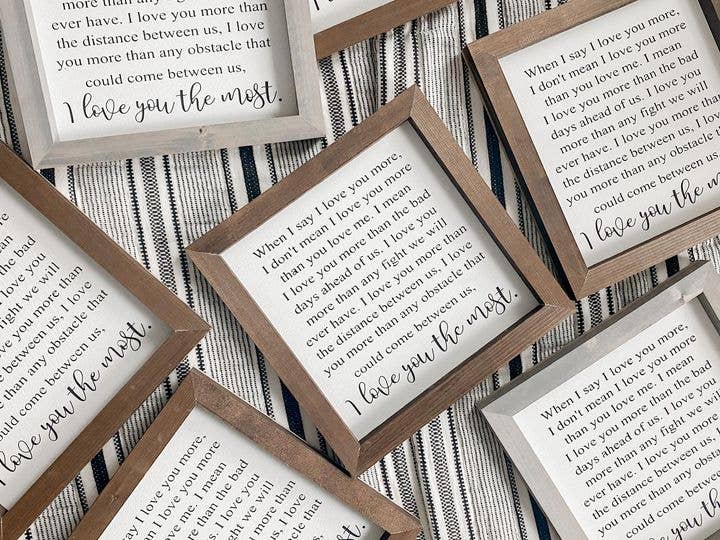 more than any fight we will
ever have. I love you more than
the distance between us, I love
you more than any obstacle that
could come between us,
I love you the most.
When I say I love you more,
I don't mean I love you more
than you love me. I mean
I love you more than the bad
days ahead of us. I love you
more than any fight we will
ever have. I love you more than
the distance between us, I love
you more than any obstacle that
could come between us,
I love you the
When I say I love you more,
I don't mean I love you more
than you love me. I mean
I love you more than the bad
days ahead of us. I love you
more than any fight we will
ever have. I love you more than
the distance between us, I love
you more than any obstacle that
could come between us,
I love you the most.
than the bad
I love you
fight we will
you more than
between us, I love
any obstacle that
could come between us,
I love you the most.
When I say I love you more,
I don't mean I love you more
than you love me. I mean
I love you more than the bad
days ahead of us. I love you
more than any fight we will
have. I love you more than
between us, I love
obstacle that
When I say I love you more,
I don't mean I love you more
than you love me. I mean
I love you more than the bad
days ahead of us. I love you
more than any fight we will
ever have. I love you more than
the distance between us, I love
you more than any obstacle that
could come between us,